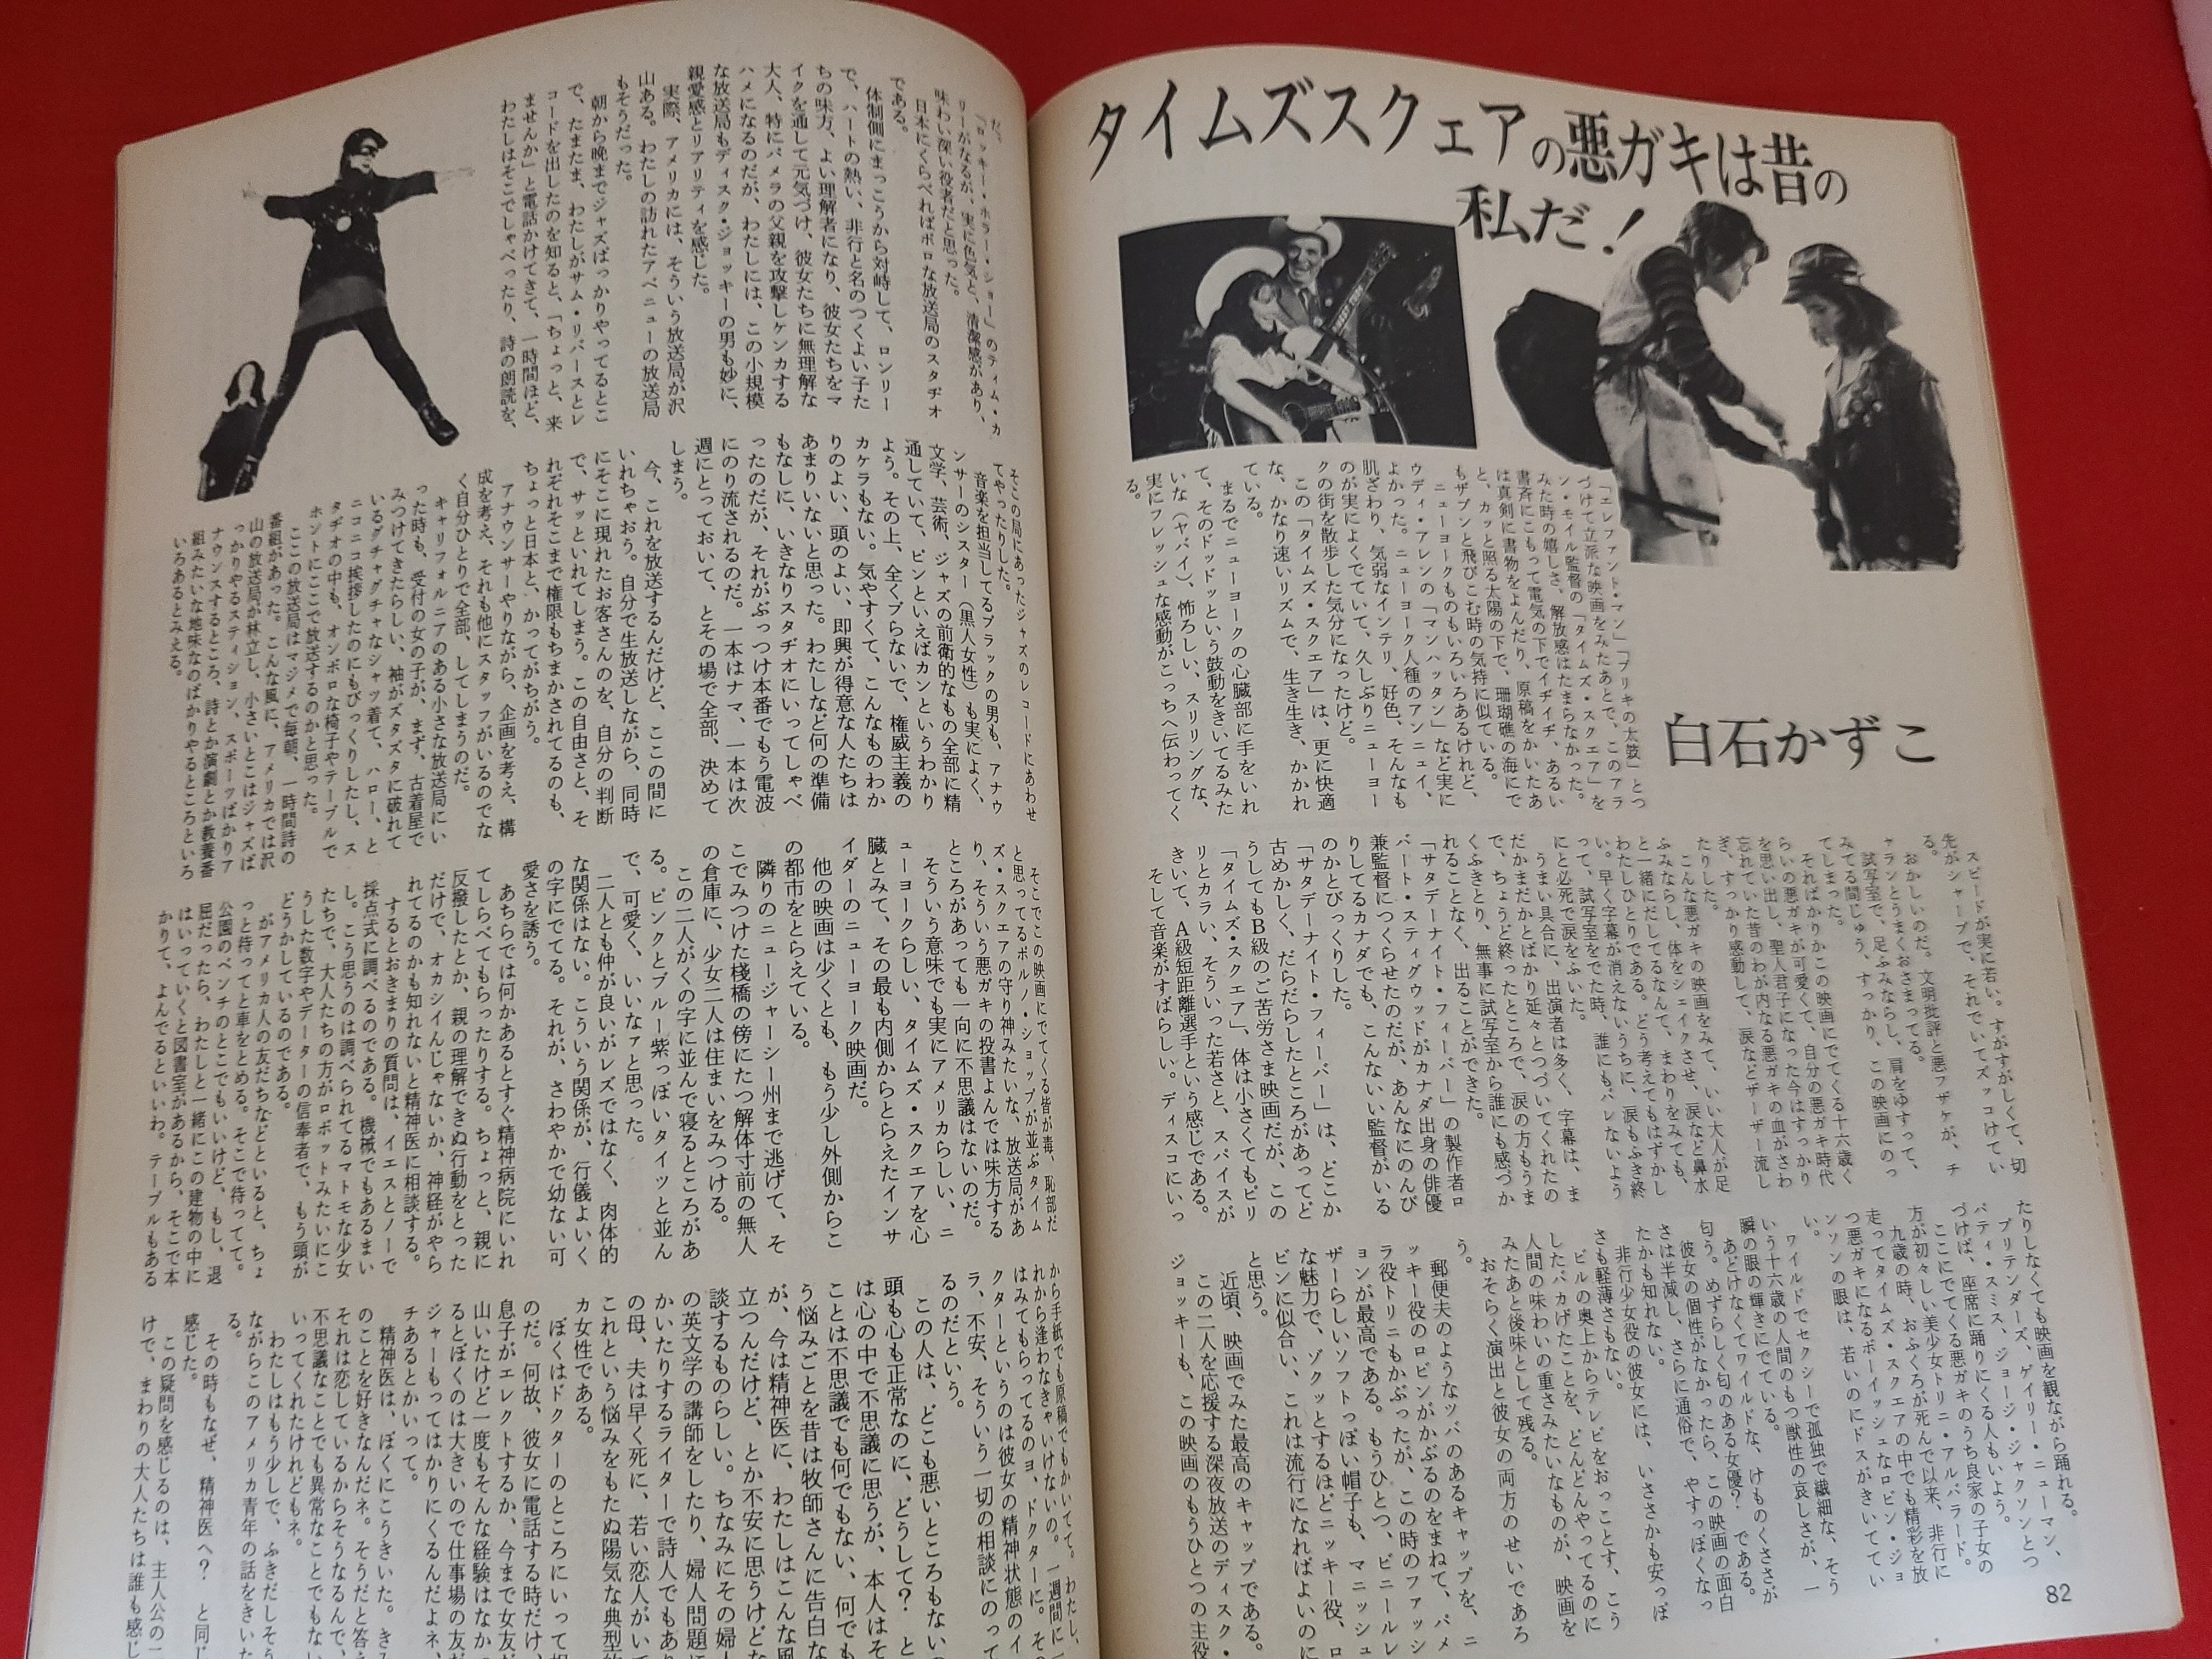 タイムズスクェアの悪ガキは昔の
私だ！
白石かずこ
「エレファント・マン」「ブリキの太鼓」とつ
づけて立派な映画をみたあとで、このアラ
ン・モイル監督の「タイムズ・スクエア」を
みた時の嬉しさ、解放感はたまらなかった。
書斉にこもって電気の下でイヂイヂ、あるい
は真剣に書物をよんだり、原稿をかいたあ
と、カッと照る太陽の下で、珊瑚礁の海にで
もザブンと飛びこむ時の気持に似ている。
ニューヨークものもいろいろあるけれど、
ウディ・アレンの「マンハッタン」など実に
よかった。ニューヨーク人種のアンニュイ、
肌ざわり、気弱なインテリ、好色、そんなも
のが実によくでていて、久しぶりニューヨー
クの街を散歩した気分になったけど。
この「タイムズ・スクエア」は、更に快適
な、かなり速いリズムで、生き生き、かかれ
ている。
まるでニューヨークの心臓部に手をいれ
て、そのドッドッという鼓動をきいてるみた
いな（ヤバイ）、怖ろしい、スリリングな、
実にフレッシュな感動がこっちへ伝わってく
る。
スピードが実に若い。すがすがしくて、切
先がシャープで、それでいてズッコけてい
る。
おかしいのだ。文明批評と悪フザケが、チ
ャランとうまくおさまってる。
試写室で、足ふみならし、肩をゆすって、
みてる間じゅう、すっかり、この映画にのっ
てしまった。
そればかりかこの映画にでてくる十六歳く
らいの悪ガキが可愛くて、自分の悪ガキ時代
を思い出し、聖人君子になった今はすっかり
忘れていた昔のわが内なる悪ガキの血がさわ
ぎ、すっかり感動して、涙などザーザー流し
たりした。
こんな悪ガキの映画をみて、いい大人が足
ふみならし、体をシェイクさせ、涙など鼻水
と一緒にだしてるなんて、まわりをみても、
わたしひとりである。どう考えてもはずかし
い。早く字幕が消えないうちに、涙もふき終
って、試写室をでた時、誰にもバレないよう
にと必死で涙をふいた。
うまい具合に、出演者は多く、字幕は、ま
だかまだかとばかり延々とつづいてくれたの
で、ちょうど終ったところで、涙の方もうま
くふきとり、無事に試写室から誰にも感づか
れることなく、出ることができた。
「サタデーナイト・フィーバー」の製作者ロ
バート・スティグウッドがカナダ出身の俳優
兼監督につくらせたのだが、あんなにのんび
りしてるカナダでも、こんないい監督がいる
のかとびっくりした。
「サタデーナイト・フィーバー」は、どこか
古めかしく、だらだらしたところがあってど
うしてもB級のご苦労さま映画だが、この
「タイムズ・スクエア」、体は小さくてもピリ
リとカラい、そういった若さと、スパイスが
きいて、A級短距離選手という感じである。
そして音楽がすばらしい。ディスコにいっ
たりしなくても映画を観ながら踊れる。
プリテンダーズ、ゲイリー・ニューマン、
パティ・スミス、ジョージ・ジャクソンとつ
づけば、座席に踊りにくる人もいよう。
ここにでてくる悪ガキのうち良家の子女の
方が初々しい美少女トリニ・アルバラード。
九歳の時、おふくろが死んで以来、非行に
走ってタイムズ・スクエアの中でも精彩を放
つ悪ガキになるボーイッシュなロビン・ジョ
ンソンの眼は、若いのにドスがきいてい
い。
ワイルドでセクシーで孤独で繊細な、そう
いう十六歳の人間のもつ獣性の哀しさが、一
瞬の眼の輝きにでている。
あどけなくてワイルドな、けものくささが
匂う。めずらしく匂のある女優？　である。
彼女の個性がなかったら、この映画の面白
さは半減し、さらに通俗で、やすっぽくなっ
たかも知れない。
非行少女役の彼女には、いささかも安っぽ
さも軽薄さもない。
ビルの奥上からテレビをおっことす、こう
したバカげたことを、どんどんやってるのに
人間の味わいの重さみたいなものが、映画を
みたあと後味として残る。
おそらく演出と彼女の両方のせいであろ
う。
郵便夫のようなツバのあるキャップを、ニ
ッキー役のロビンがかぶるのをまねて、パメ
ラ役トリニもかぶったが、この時のファッシ
ョンが最高である。もうひとつ、ビニールレ
ザーらしいソフトっぽい帽子も、マニッシュ
な魅力で、ゾクッとするほどニッキー役、ロ
ビンに似合い、これは流行になればよいのに
と思う。
近頃、映画でみた最高のキャップである。
この二人を応援する深夜放送のディスク・
ジョッキーも、この映画のもうひとつの主役
82
だ。
「ロッキー・ホラー・ショー」のティム・カ
リーがなるが、実に色気と、清潔感があり、
味わい深い役者だと思った。
日本にくらべればボロな放送局のスタヂオ
である。
体制側にまっこうから対峙して、ロンリー
で、ハートの熱い、非行と名のつくよい子た
ちの味方、よい理解者になり、彼女たちをマ
イクを通して元気づけ、彼女たちに無理解な
大人、特にパメラの父親を攻撃しケンカする
ハメになるのだが、わたしには、この小規模
な放送局もディスク・ジョッキーの男も妙に、
親愛感とリアリティを感じた。
実際、アメリカには、そういう放送局が沢
山ある。わたしの訪れたアベニューの放送局
もそうだった。
朝から晩までジャズばっかりやってるとこ
で、たまたま、わたしがサム・リバースとレ
コードを出したのを知ると、「ちょっと、来
ませんか」と電話かけてきて、一時間ほど、
わたしはそこでしゃべったり、詩の朗読を、
そこの局にあったジャズのレコードにあわせ
てやったりした。
音楽を担当してるブラックの男も、アナウ
ンサーのシスター（黒人女性）も実によく、
文学、芸術、ジャズの前衛的なもの全部に精
通していて、ピンといえばカンというわかり
よう。その上、全くブらないで、権威主義の
カケラもない。気やすくて、こんなものわか
りのよい、頭のよい、即興が得意な人たちは
あまりいないと思った。わたしなど何の準備
もなしに、いきなりスタヂオにいってしゃべ
ったのだが、それがぶっつけ本番でもう電波
にのり流されるのだ。一本はナマ、一本は次
週にとっておいて、とその場で全部、決めて
しまう。
今、これを放送するんだけど、ここの間に
いれちゃおう。自分で生放送しながら、同時
にそこに現れたお客さんのを、自分の判断
で、サッといれてしまう。この自由さと、そ
れぞれそこまで権限もちまかされてるのも、
ちょっと日本と、かってがちがう。
アナウンサーやりながら、企画を考え、構
成を考え、それも他にスタッフがいるのでな
く自分ひとりで全部、してしまうのだ。
キャリフォルニアのある小さな放送局にい
った時も、受付の女の子が、まず、古着屋で
みつけてきたらしい、袖がズタズタに破れて
いるグチャグチャなシャツ着て、ハロー、と
ニコニコ挨拶したのにもびっくりしたし、ス
タヂオの中も、オンボロな椅子やテーブルで
ホントにここで放送するのかと思った。
ここの放送局はマジメで毎朝、一時間詩の
番組があった。こんな風に、アメリカでは沢
山の放送局が林立し、小さいとこはジャズば
っかりやるスティション、スポーツばかりア
ナウンスするところ、詩とか演劇とか教養番
組みたいな地味なのばかりやるところといろ
いろあるとみえる。
そこでこの映画にでてくる皆が毒、恥部だ
と思ってるポルノ・ショップが並ぶタイム
ズ・スクエアの守り神みたいな、放送局があ
り、そういう悪ガキの投書よんでは味方する
ところがあっても一向に不思議はないのだ。
そういう意味でも実にアメリカらしい、ニ
ューヨークらしい、タイムズ・スクエアを心
臓とみて、その最も内側からとらえたインサ
イダーのニューヨーク映画だ。
他の映画は少くとも、もう少し外側からこ
の都市をとらえている。
隣りのニュージャーシー州まで逃げて、そ
こでみつけた棧橋の傍にたつ解体寸前の無人
の倉庫に、少女二人は住まいをみつける。
この二人がくの字に並んで寝るところがあ
る。ピンクとブルー紫っぽいタイツと並ん
で、可愛く、いいなァと思った。
二人とも仲が良いがレズではなく、肉体的
な関係はない。こういう関係が、行儀よいく
の字にでてる。それが、さわやかで幼ない可
愛さを誘う。
あちらでは何かあるとすぐ精神病院にいれ
てしらべてもらったりする。ちょっと、親に
反撥したとか、親の理解できぬ行動をとった
だけで、オカシイんじゃないか、神経がやら
れてるのかも知れないと精神医に相談する。
するとおきまりの質問は、イエスとノーで
採点式に調べるのである。機械でもあるまい
し。こう思うのは調べられてるマトモな少女
たちで、大人たちの方がロボットみたいにこ
うした数字やデーターの信奉者で、もう頭が
どうかしているのである。
がアメリカ人の友だちなどといると、ちょ
っと待ってと車をとめる。そこで待ってて。
公園のベンチのとこでもいいけど、もし、退
屈だったら、わたしと一緒にこの建物の中に
はいっていくと図書室があるから、そこで本
かりて、よんでるといいわ。テーブルもある
から手紙でも原稿でもかいてて。わたし、
れから逢わなきゃいけないの。一週間に一
はみてもらってるのヨ、ドクターに。その
クターというのは彼女の精神状態のイ
ラ、不安、そういう一切の相談にのって
るのだという。
この人は、どこも悪いところもないの
頭も心も正常なのに、どうして？　と
は心の中で不思議に思うが、本人はそ
ことは不思議でも何でもない、何でも
う悩みごとを昔は牧師さんに告白な
が、今は精神医に、わたしはこんな風
立つんだけど、とか不安に思うけどな
談するものらしい。ちなみにその婦人
の英文学の講師をしたり、婦人問題に
かいたりするライターで詩人でもあり
の母、夫は早く死に、若い恋人がいて
これという悩みをもたぬ陽気な典型的
カ女性である。
ぼくはドクターのところにいって相
のだ。何故、彼女に電話する時だけ、
息子がエレクトするか、今まで女友だ
山いたけど一度もそんな経験はなかっ
るとぼくのは大きいので仕事場の友だ
ジャーもってはかりにくるんだよネ、
チあるとかいって。
精神医は、ぼくにこうきいた。きみ
のことを好きなんだネ。そうだと答え
それは恋しているからそうなるんで、
不思議なことでも異常なことでもない
いってくれたけれどもネ。
わたしはもう少しで、ふきだしそう
ながらこのアメリカ青年の話をきいた
る。
その時もなぜ、精神医へ？　と同じ
感じした。
この疑問を感じるのは、主人公の二
けで、まわりの大人たちは誰も感じ